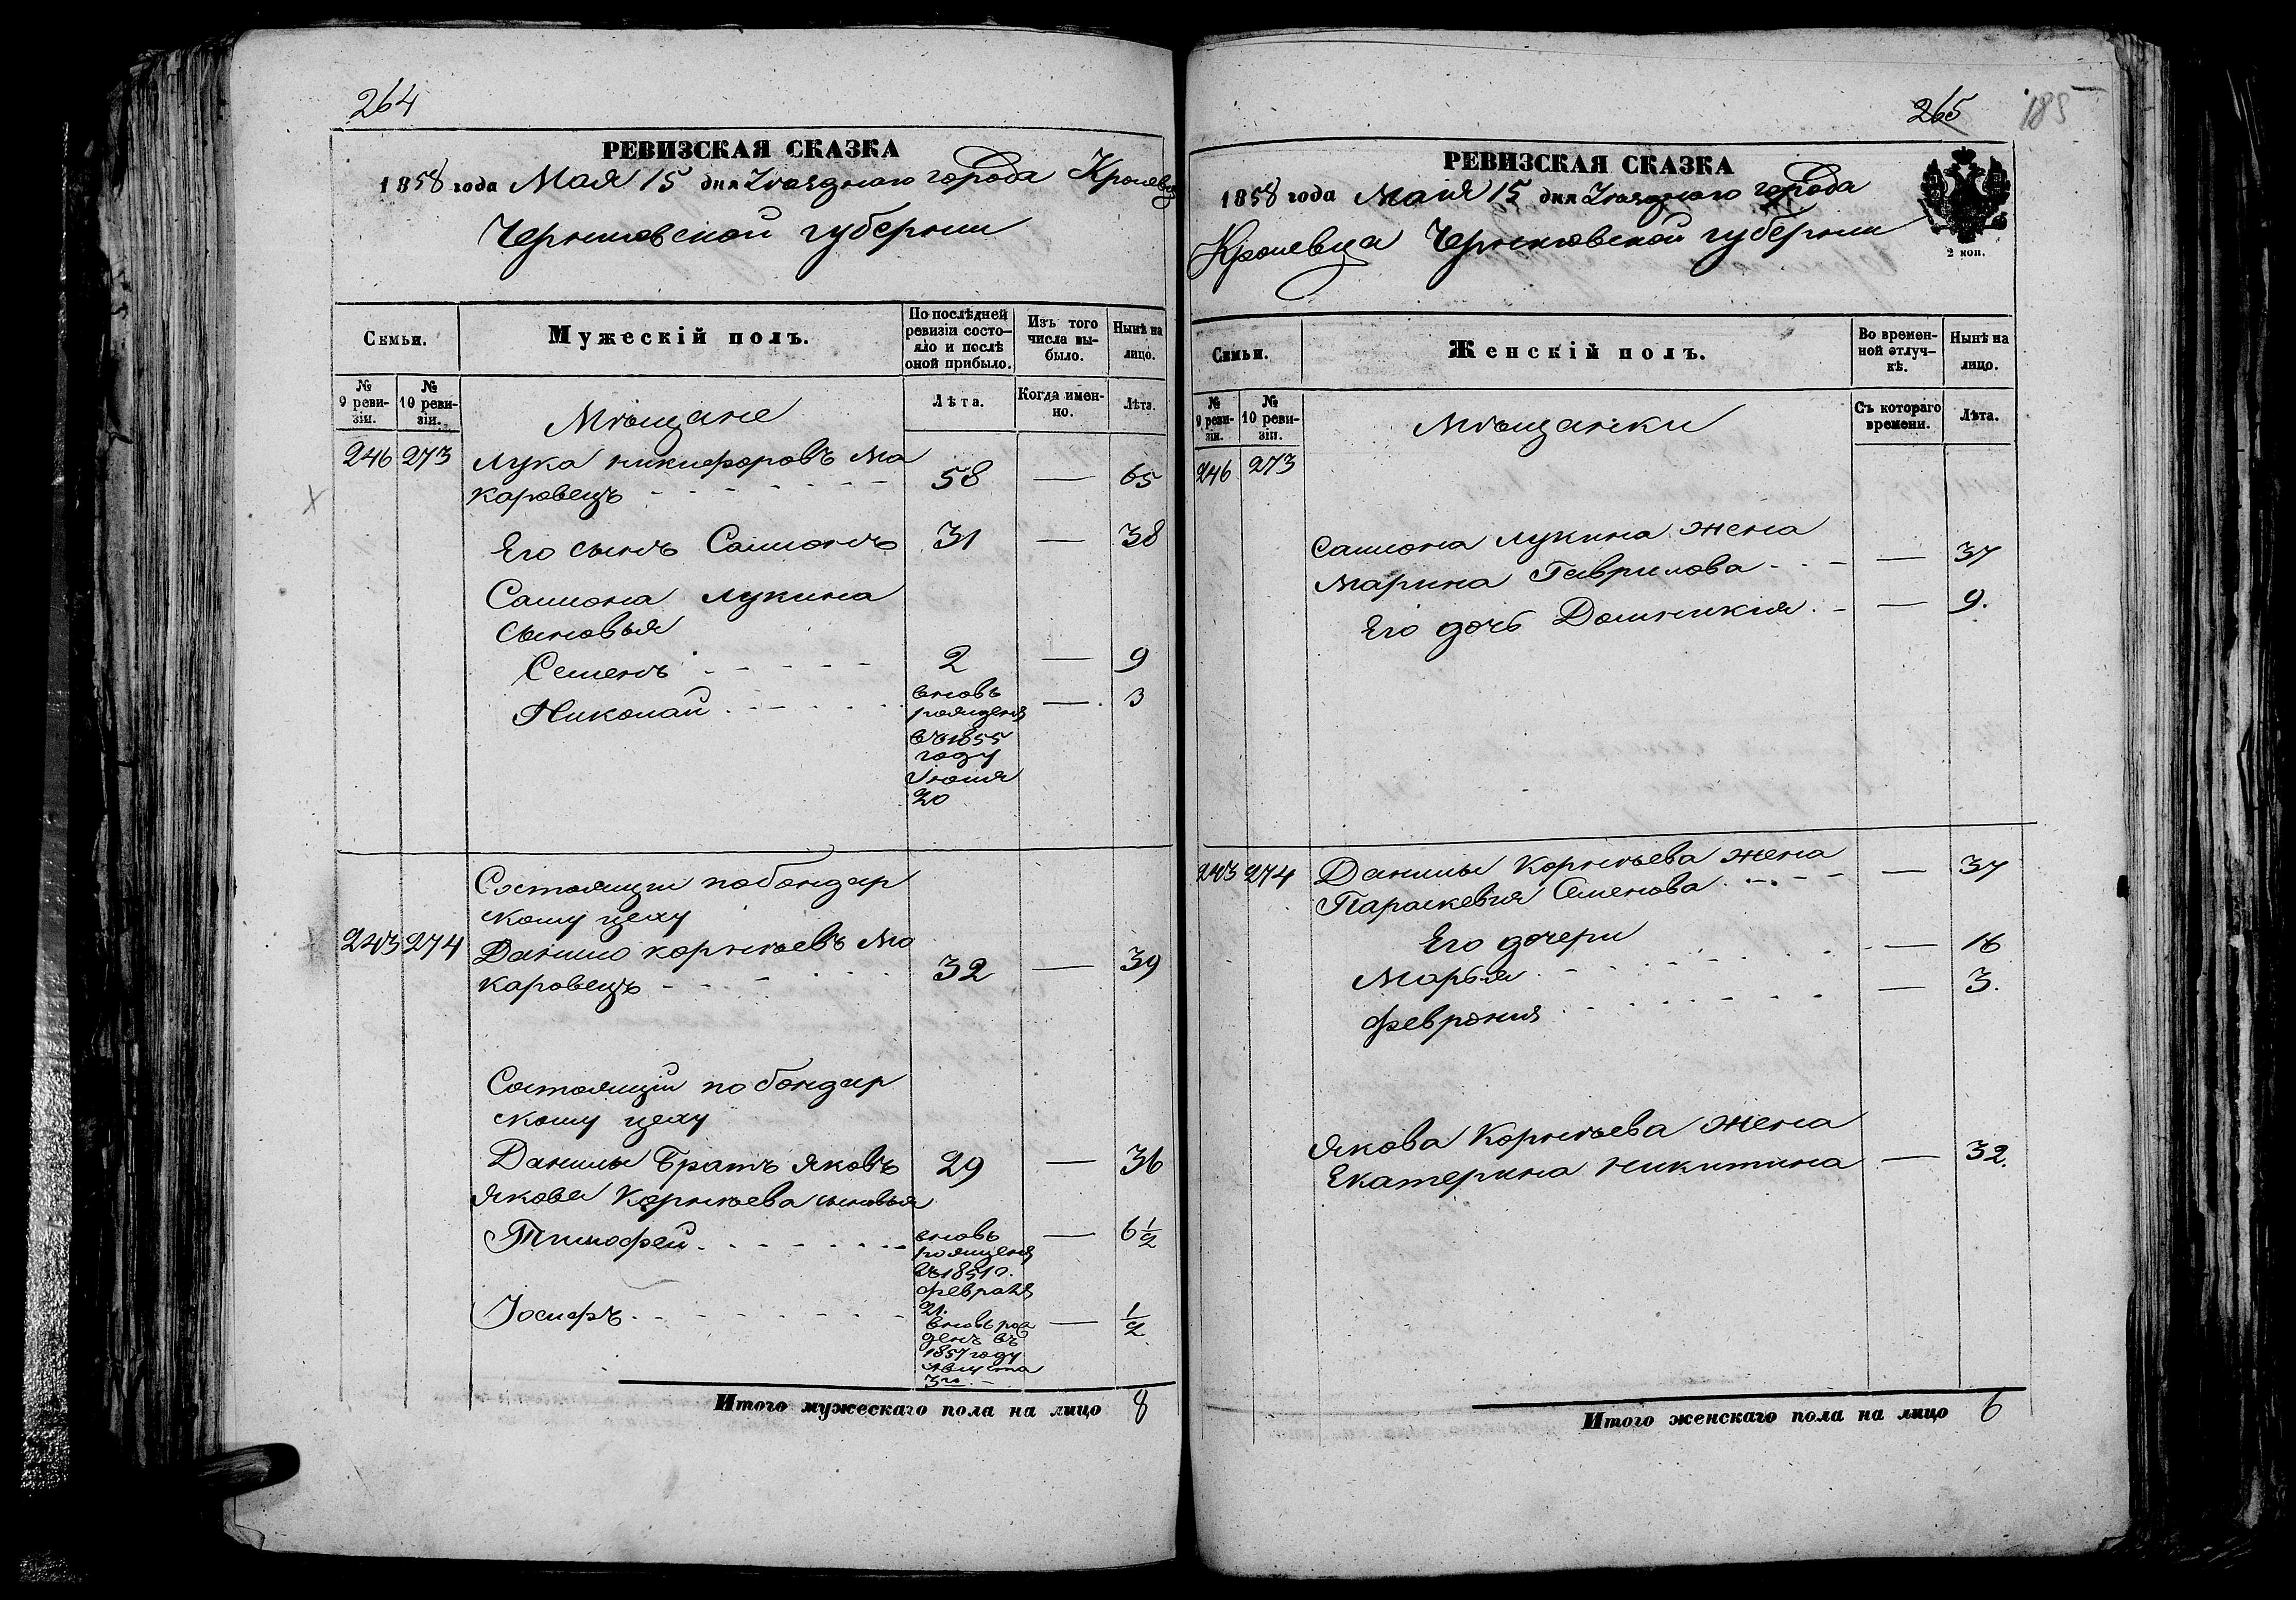 264
РЕВИЗСКАЯ СКАЗКА
1858 года Мая 15 дня Уезднаго города Кролевца
Черниговской губернии
Семьи.
Мужескій полъ.
По послѣдней ревизіи состояло и послѣ оной прибыло.
Изъ того числа выбыло.
Нынѣ на лицо.
№ 9 ревизіи.
№ 10 ревизіи.
Лѣта.
Когда именно.
Лѣта.
Мѣщане
246 273 Лука Никифоровъ Ма
каровецъ 58 — 65
Его сынъ Самсонъ 31 — 38
Самсона Лукина
сыновья
Семенъ 2 — 9
Николай вновь — 3
рожденъ
въ 1855
году
Іюня
20
Состоящіи по бондар
скому цеху
243 274 Данило Корнѣевъ Ма
каровецъ 32 — 39
Состоящій по бондар
скому цеху
Данилы братъ Яковъ 29 — 36
Якова Корнѣева сыновья
Тимофей вновь — 6 1/2
рожденъ
въ 1851 г.
февраля
21.
Іосифъ вновь рож — 1/2
денъ въ
1857 году
Августа
3го
Итого мужескаго пола на лицо 8
265 185
РЕВИЗСКАЯ СКАЗКА
1858 года Маія 15 дня Уезднаго города
Кролевца Черниговской губернии
2 коп.
Семьи.
Женскій полъ.
Во временной отлучкѣ.
Нынѣ на лицо.
№ 9 ревизіи.
№ 10 ревизіи.
Съ котораго времени.
Лѣта.
Мѣщанки
246 273
Самсона Лукина жена
Марина Гаврилова — 37
Его дочь Домникия — 9.
243 274 Данилы Корнѣева жена — 37
Параскевия Семенова
Его дочери
Марья — 16
Феврония — 3.
Якова Корнѣева жена
Екатерина Никитина — 32.
Итого женскаго пола на лицо 6